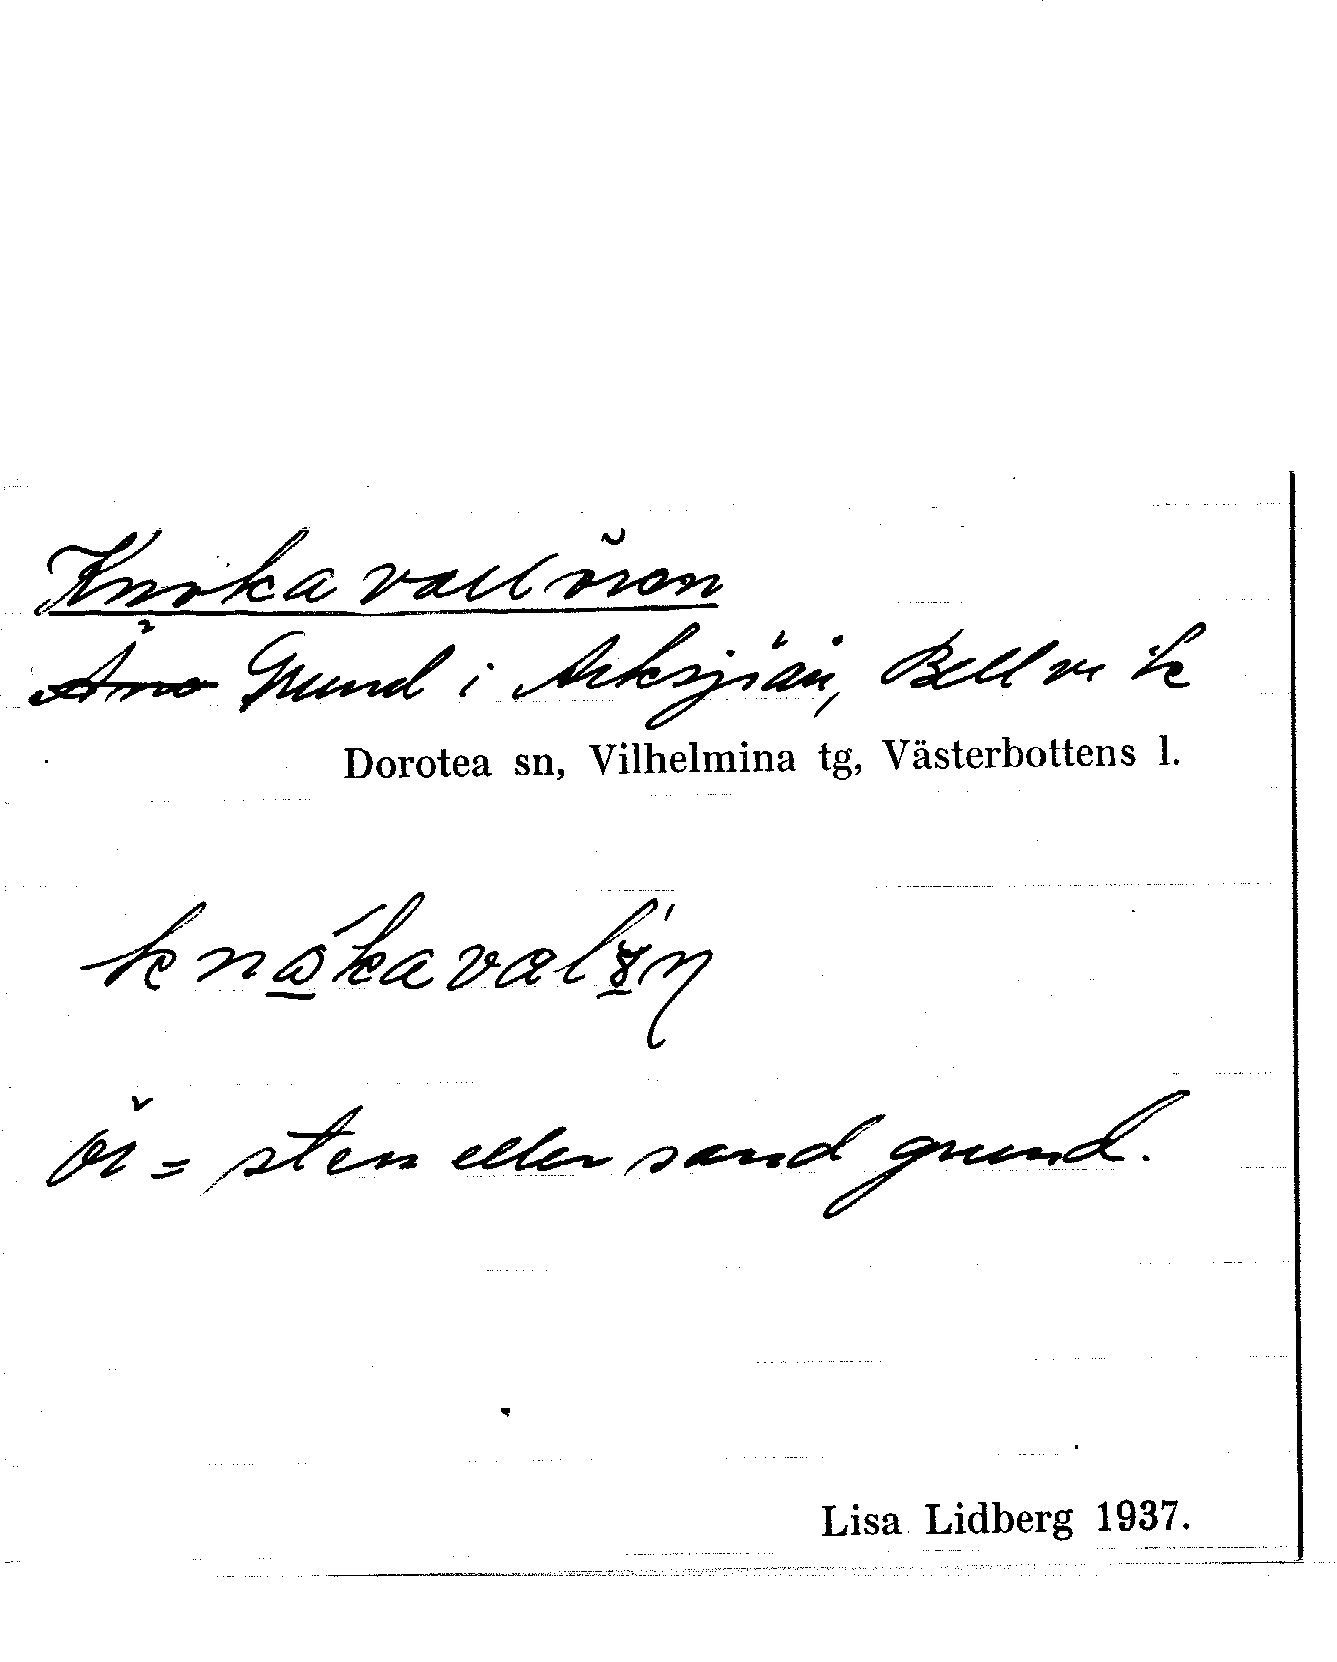 Knokavallören
Grund i Arksjöån, Bellvik
Dorotea sn, Vilhelmina tg, Västerbottens l.
ör = sten eller sand grund.
Lisa Lidberg 1937.